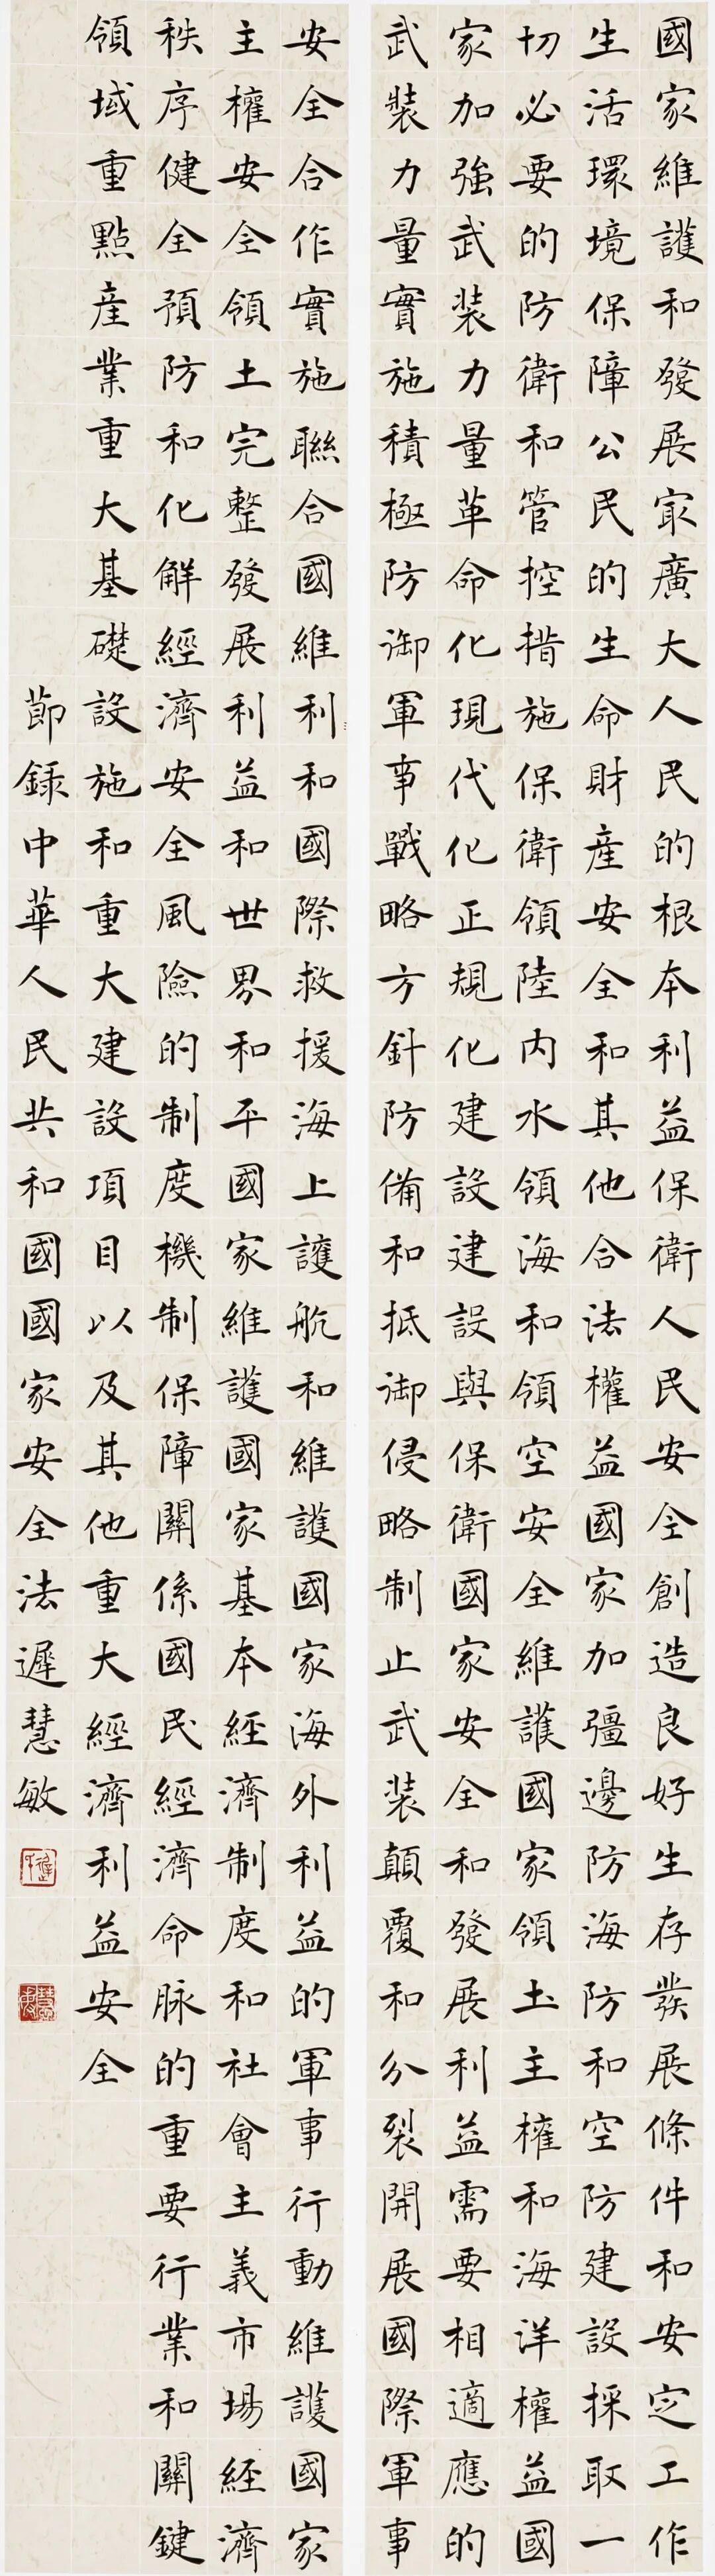 國家維護和發展冣廣大人民的根本利益保衛人民安全創造良好生存發展條件和安定工作
生活環境保障公民的生命財産安全和其他合法權益國家加彊邊防海防和空防建設採取一
切必要的防衛和管控措施保衛領陸内水領海和領空安全維護國家領土主權和海洋權益國
家加強武裝力量革命化現代化正規化建設建設與保衛國家安全和發展利益需要相適應的
武裝力量實施積極防御軍事戰略方針防備和抵御侵略制止武装顛覆和分裂開展國際軍事
安全合作實施聯合國維利和國際救援海上護航和維護國家海外利益的軍事行動維護國家
主權安全領土完整發展利益和世界和平國家維護國家基本經濟制度和社會主義市場經濟
秩序健全預防和化解經濟安全風險的制度機制保障關係國民經濟命脉的重要行業和關鍵
領域重點産業重大基礎設施和重大建設項目以及其他重大經濟利益安全
節録中華人民共和國國家安全法遲慧敏